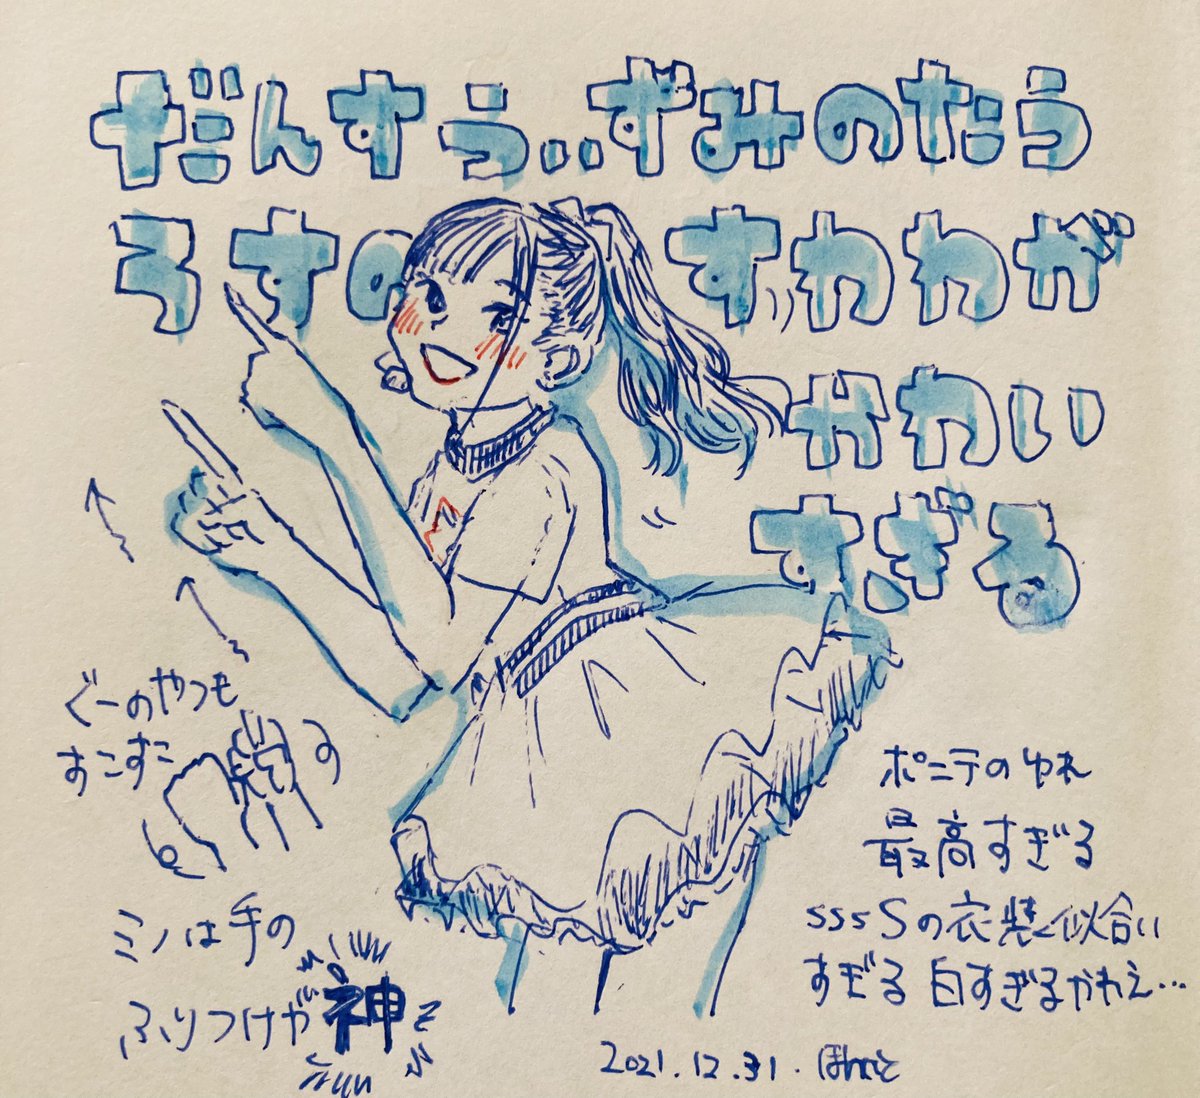 だんすぅ‥ずみのたう
ろすの すわわが
かわい
すぎる
ぐーのやつも
すこすこ する
ミノは手の
ふりつけが神
ポニテのゆれ
最高すぎる
sssSの衣装似合い
すぎる 白すぎるかわえ…
2021.12.31.